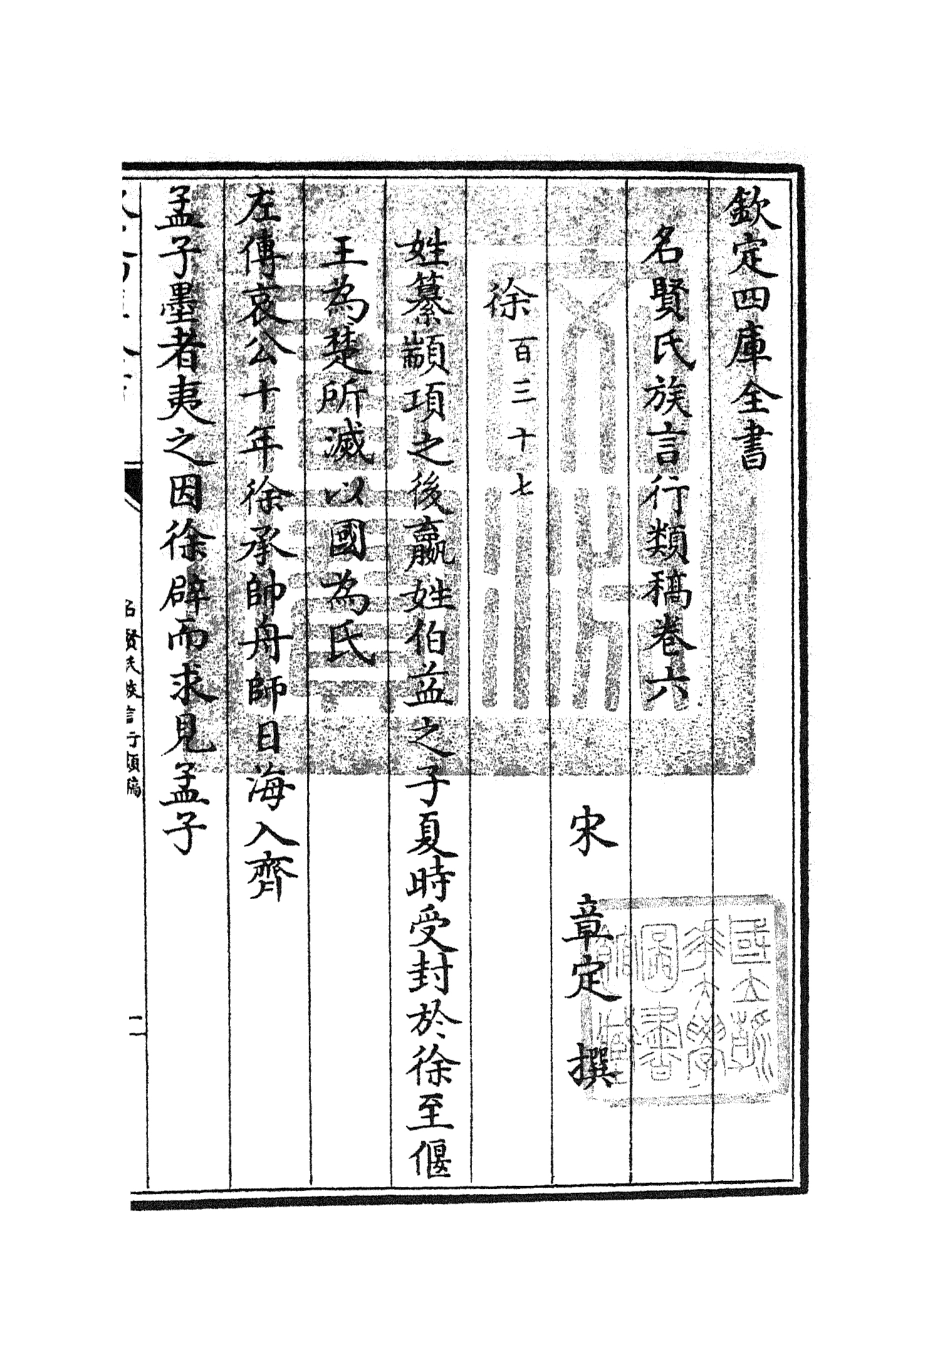 欽定四庫全書
名賢氏族言行類稿卷六
宋 章定 撰
徐百三十七
姓纂顓頊之後嬴姓伯益之子夏時受封於徐至偃
王為楚所滅以國為氏
左傳哀公十年徐承帥舟師自海入齊
孟子墨者夷之因徐辟而求見孟子
名賢氏族言行類稿